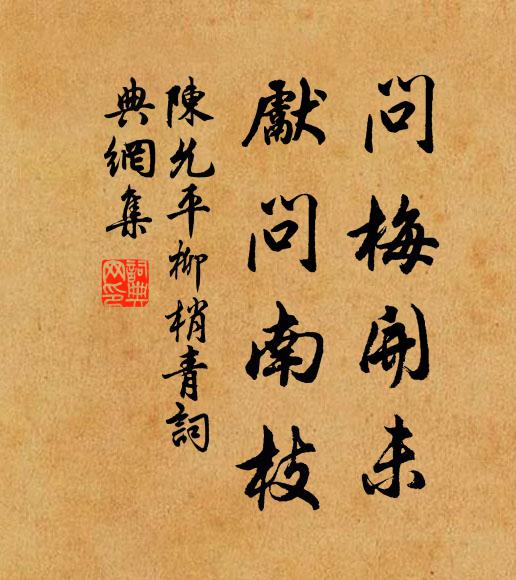 問梅開未
獻問南枝
陳允平柳梢青詞
典網集
詞典
网印